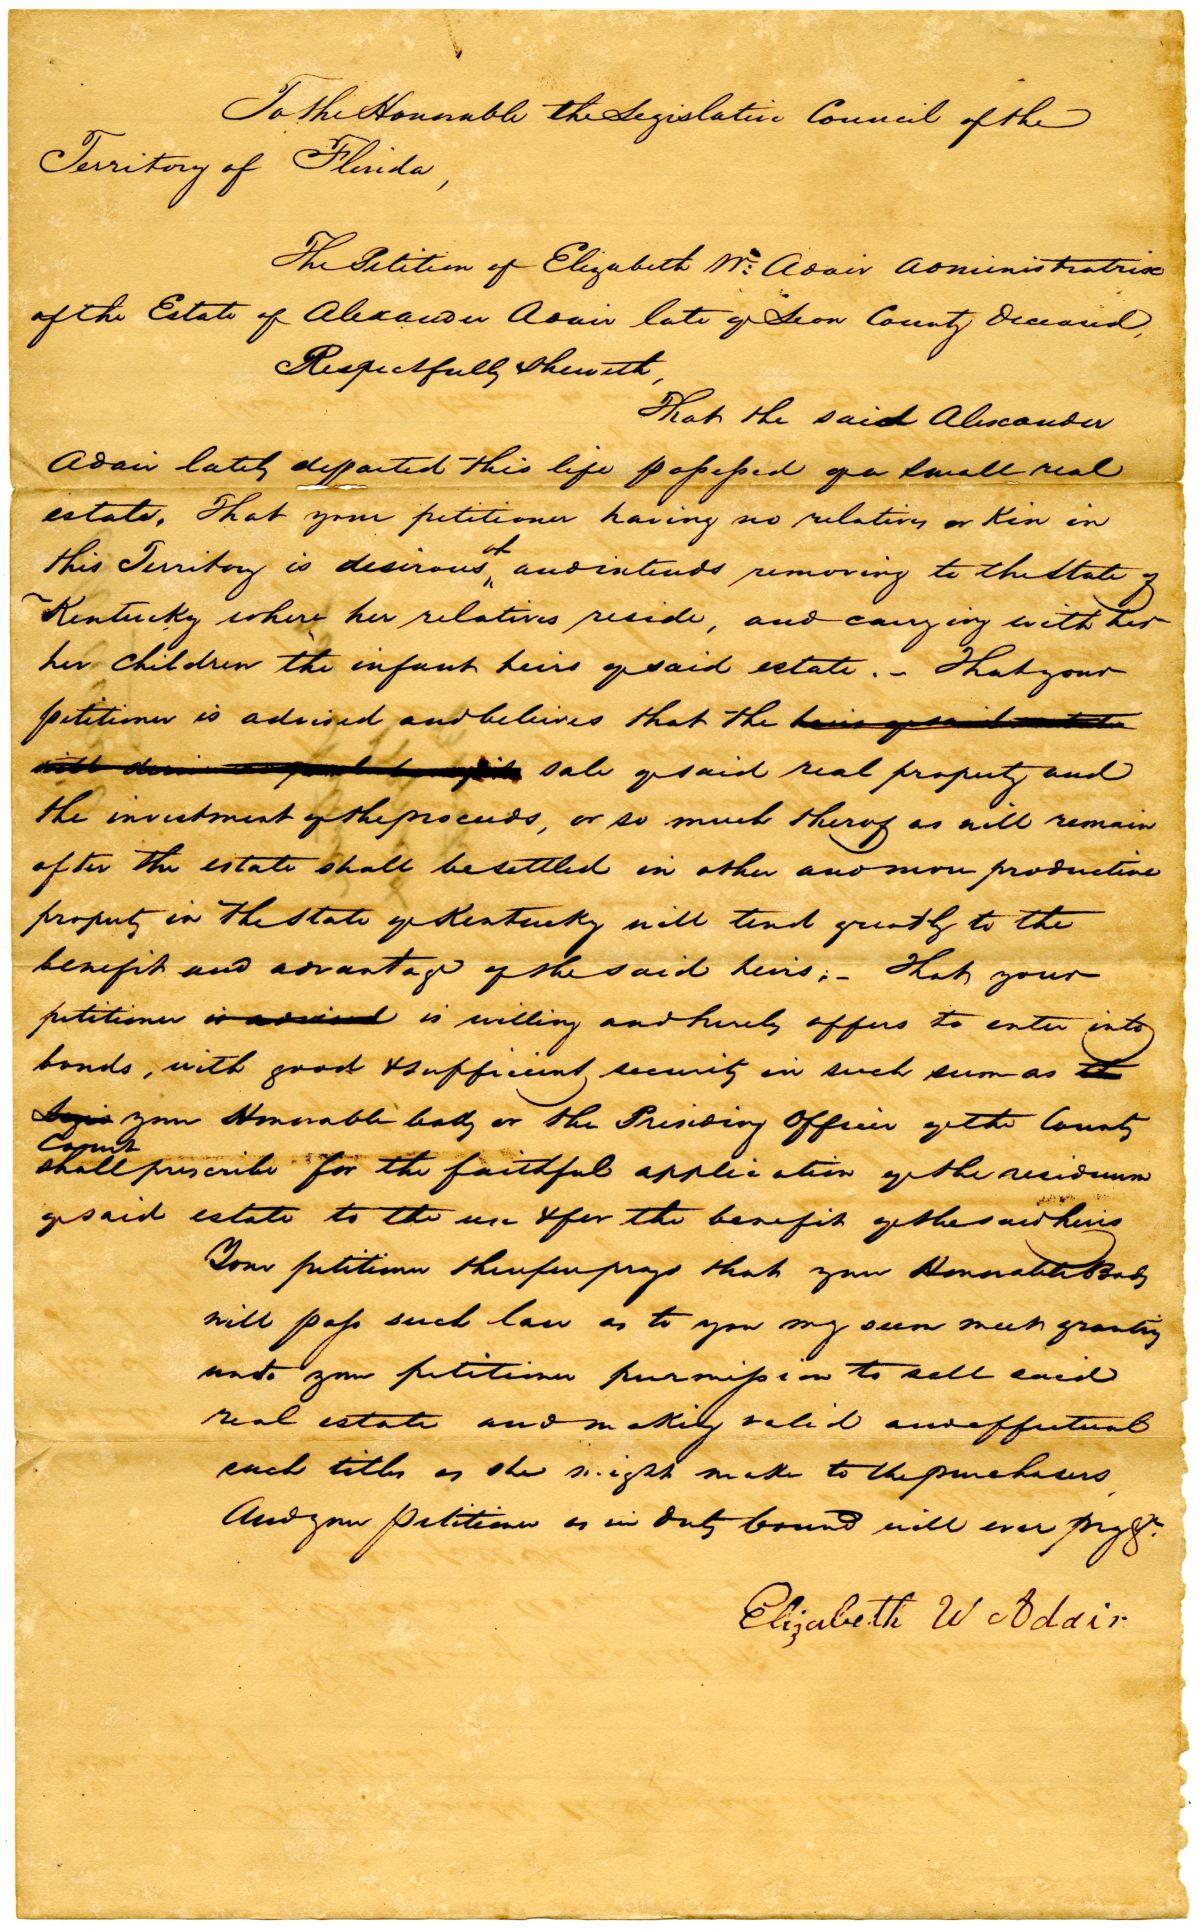 To the Honorable the Legislative Council of the
Territory of Florida,
The Petition of Elizabeth W. Adair Administratrix
of the Estate of Alexander Adair late of Leon County Deceased,
Respectfully sheweth,
That the said Alexander
Adair lately departed this life possessed of a small real
estate. That your petitioner having no relatives or Kin in
this Territory is desirous of and intends removing to the State of
Kentucky where her relatives reside, and carrying with her
her children the infant heirs of said estate. – That your
petitioner is advised and believes that the heirs of said estate
will sale of said real property and
the investment of the proceeds, or so much therof as will remain
after the estate shall be settled in other and more productive
property in the State of Kentucky will tend greatly to the
benefit and advantage of the said heirs; – That your
petitioner is advised is willing and hereby offers to enter into
bonds, with good & sufficient security in such sum as the
your Honorable body or the Presiding Officer of the County
Court
shall prescribe for the faithful application of the residuum
of said estate to the use & for the benefit of the said heirs
Your petitioner therefore prays that your Honorable Body
will pass such law as to you my seem meet granting
unto your petitioner permission to sell said
real estate and making valid and effectual
such titles as she might make to the purchasers,
And your petitioner as in duty bound will ever pry &c.
Elizabeth W Adair